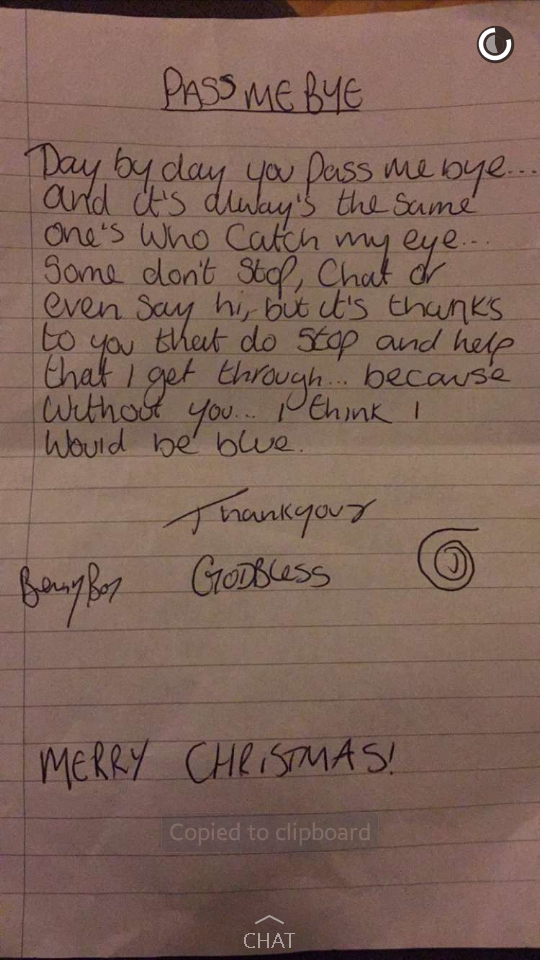 PASS ME BYE
Day by day you pass me bye...
and it's alway's the same
one's who catch my eye...
Some don't stop, chat or
even say hi, but it's thanks
to you that do stop and help
that I get through... because
without you... I think I
would be blue.
Thankyou
GODBLESS
MERRY CHRISTMAS!
Copied to clipboard
CHAT